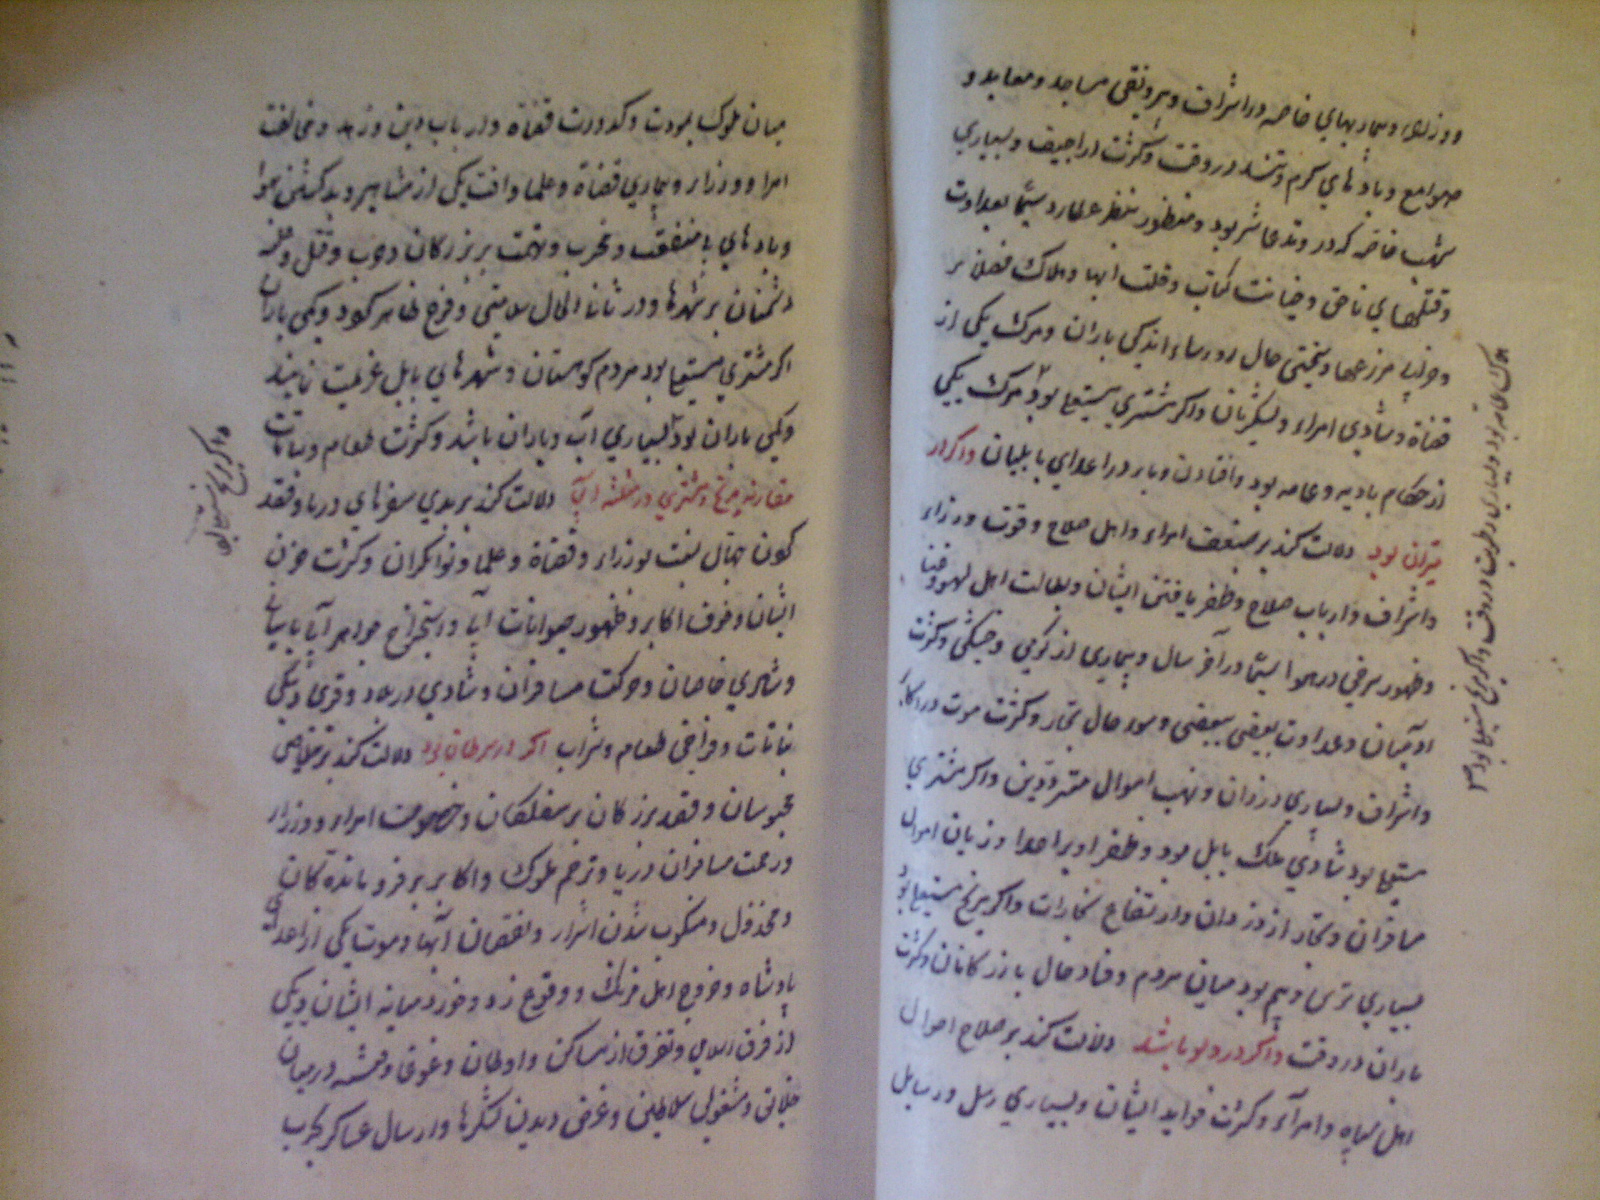 ووزراء و بیماریهای خاصه در اشراف و بی‌رونقی مساجد و معابد و
صوامع و بادهای گرم و تند در وقت و کثرت اراجیف و بسیاری
شهب خاصه که در وتد عاشر بود و منظور بنظر عطارد سیما بعداوت
و قتلهای ناحق و خیانت کتاب و قلت آبها و هلاک
و خرابی مزرعها و سختی حال روساء و اندکی باران و مرگ یکی از
قضاة و شادی امراء و لشکریان و اگر مشتری مستعلی بود مرگ یکی
از حکام بادیه و عامه بود و افتادن وبا در اعدای بابلیان و اگر در
میزان بود دلالت کند بر ضعف امراء و اهل صلاح و قوت وزراء
و اشراف و ارباب صلاح و ظفر یافتن ایشان و بطالت اهل لهو و غنا
و ظهور سرخی در هوا سیما در آخر سال و بیماری از گرمی و خشکی و کثرت
آدمیان و عداوت بعضی ببعضی و سود حال تجار و کثرت موت در اکابر
و اشراف و بسیاری دزدان و نهب اموال متمردین و اگر مشتری
مستعلی بود شادی ملک بابل بود و ظفر او بر اعدا و زیان اموال
مسافران و تجار از دزدان و ارتفاع تجارات و اگر مریخ مستعلی بود
بسیاری ترس و بیم بود میان مردم و فساد حال بازرگانان و کثرت
باران در وقت و اگر در دلو باشد دلالت کند بر صلاح احوال
اهل سپاه و امراء و کثرت فواید ایشان و بسیاری رسل و رسایل
هلاک عامه بود و بسیاری رطوبت در وقت و اگر مریخ مستعلی بود
میان ملوک بمودت و کدورت قضاة و ارباب دین و زهد و مخالفت
امرا و وزراء و بیماری قضاة و علما و آفت یکی از مشاهیر و بد گشتن هوا
و بادهای با منفعت و حرب و تهمت بر بزرگان و حرب و قتل و غلبه
دشمنان بر شهرها و در اثنا الحال سلامتی و فرح ظاهر گردد و کمی باران
اگر مشتری مستعلی بود مردم کوهستان و شهرهای بابل عزیمت نمایند
و کمی باران بود بسیاری آب و باران باشد و کثرت طعام و نباتات
مقارنه مریخ و مشتری در مثلثه آبی دلالت کند بر بدی سفرهای دریا و قصد
کردن جهال نسبت بوزراء و قضاة و علما و توانگران و کثرت حزن
ایشان و خوف اکابر و ظهور حیوانات آبی و استخراج جواهر آبی
و شادی خاصان و حرکت مسافران و شادی در بلاد و قری و نیکی
نباتات و فراخی طعام و شراب اگر در سرطان بود دلالت کند بر خلاصی
محبوسان و قصد بزرگان بر سفلگان و خصومت امراء و وزراء
و زحمت مسافران دریا و ترحم ملوک و اکابر بر فروماندگان
و مخذول و منکوب شدن اشرار و نقصان آبها و موت یکی از اعدای
پادشاه و خروج اهل فرنگ و وقوع زد و خورد میانه ایشان و یکی
از فرق اسلامی و تفرق از مساکن و اوطان و غوغا و خشم در میان
خلایق و مشغولی سلاطین و عرض دیدن لشکرها و ارسال عساکر بحرب
و اگر مریخ مستعلی